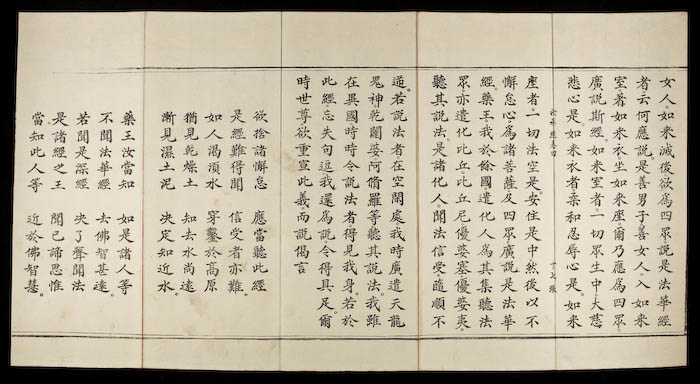 女人。如來滅後欲爲四眾說是法華經
者云何應說。是善男子善女人。入如來
室著如來衣坐如來座。爾乃應爲四眾。
廣說斯經。如來室者。一切眾生中大慈
悲心是。如來衣者。柔和忍辱心是。如來
十七 張
座者。一切法空是。安住是中。然後以不
懈怠心。爲諸菩薩及四眾廣說是法華
經。藥王。我於餘國遣化人。爲其集聽法
眾。亦遣化比丘。比丘尼。優婆塞。優婆夷。
聽其說法。是諸化人。聞法信受。隨順不
逆。若說法者。在空閑處。我時廣遣天龍
鬼神。乾闥婆。阿脩羅等。聽其說法。我雖
在異國。時時令說法者得見我身。若於
此經。忘失句逗。我還爲說。令得具足。爾
時世尊欲重宣此義。而說偈言
欲捨諸懈怠 應當聽此經
是經難得聞 信受者亦難。
如人渴須水 穿鑿於高原
猶見乾燥土 知去水尚遠
漸見濕土泥 決定知近水。
藥王汝當知 如是諸人等
不聞法華經 去佛智甚遠
若聞是深經 決了聲聞法
是諸經之王 聞已諦思惟
當知此人等 近於佛智慧。